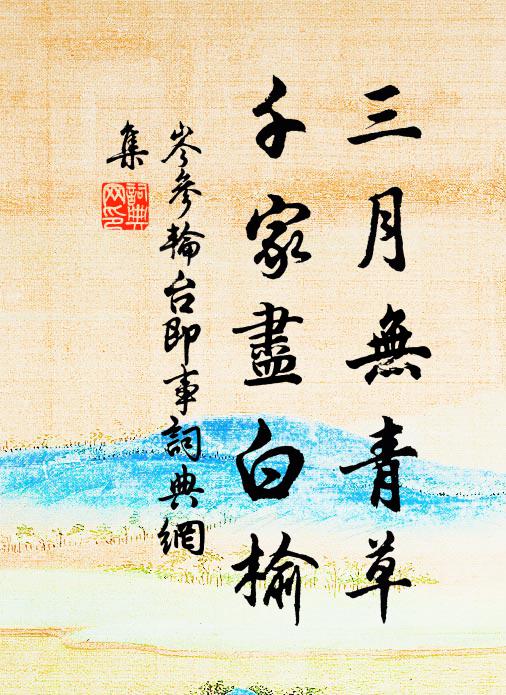 三月無青草
千家盡白榆
岑參輪台即事詞典網
集
詞典網印